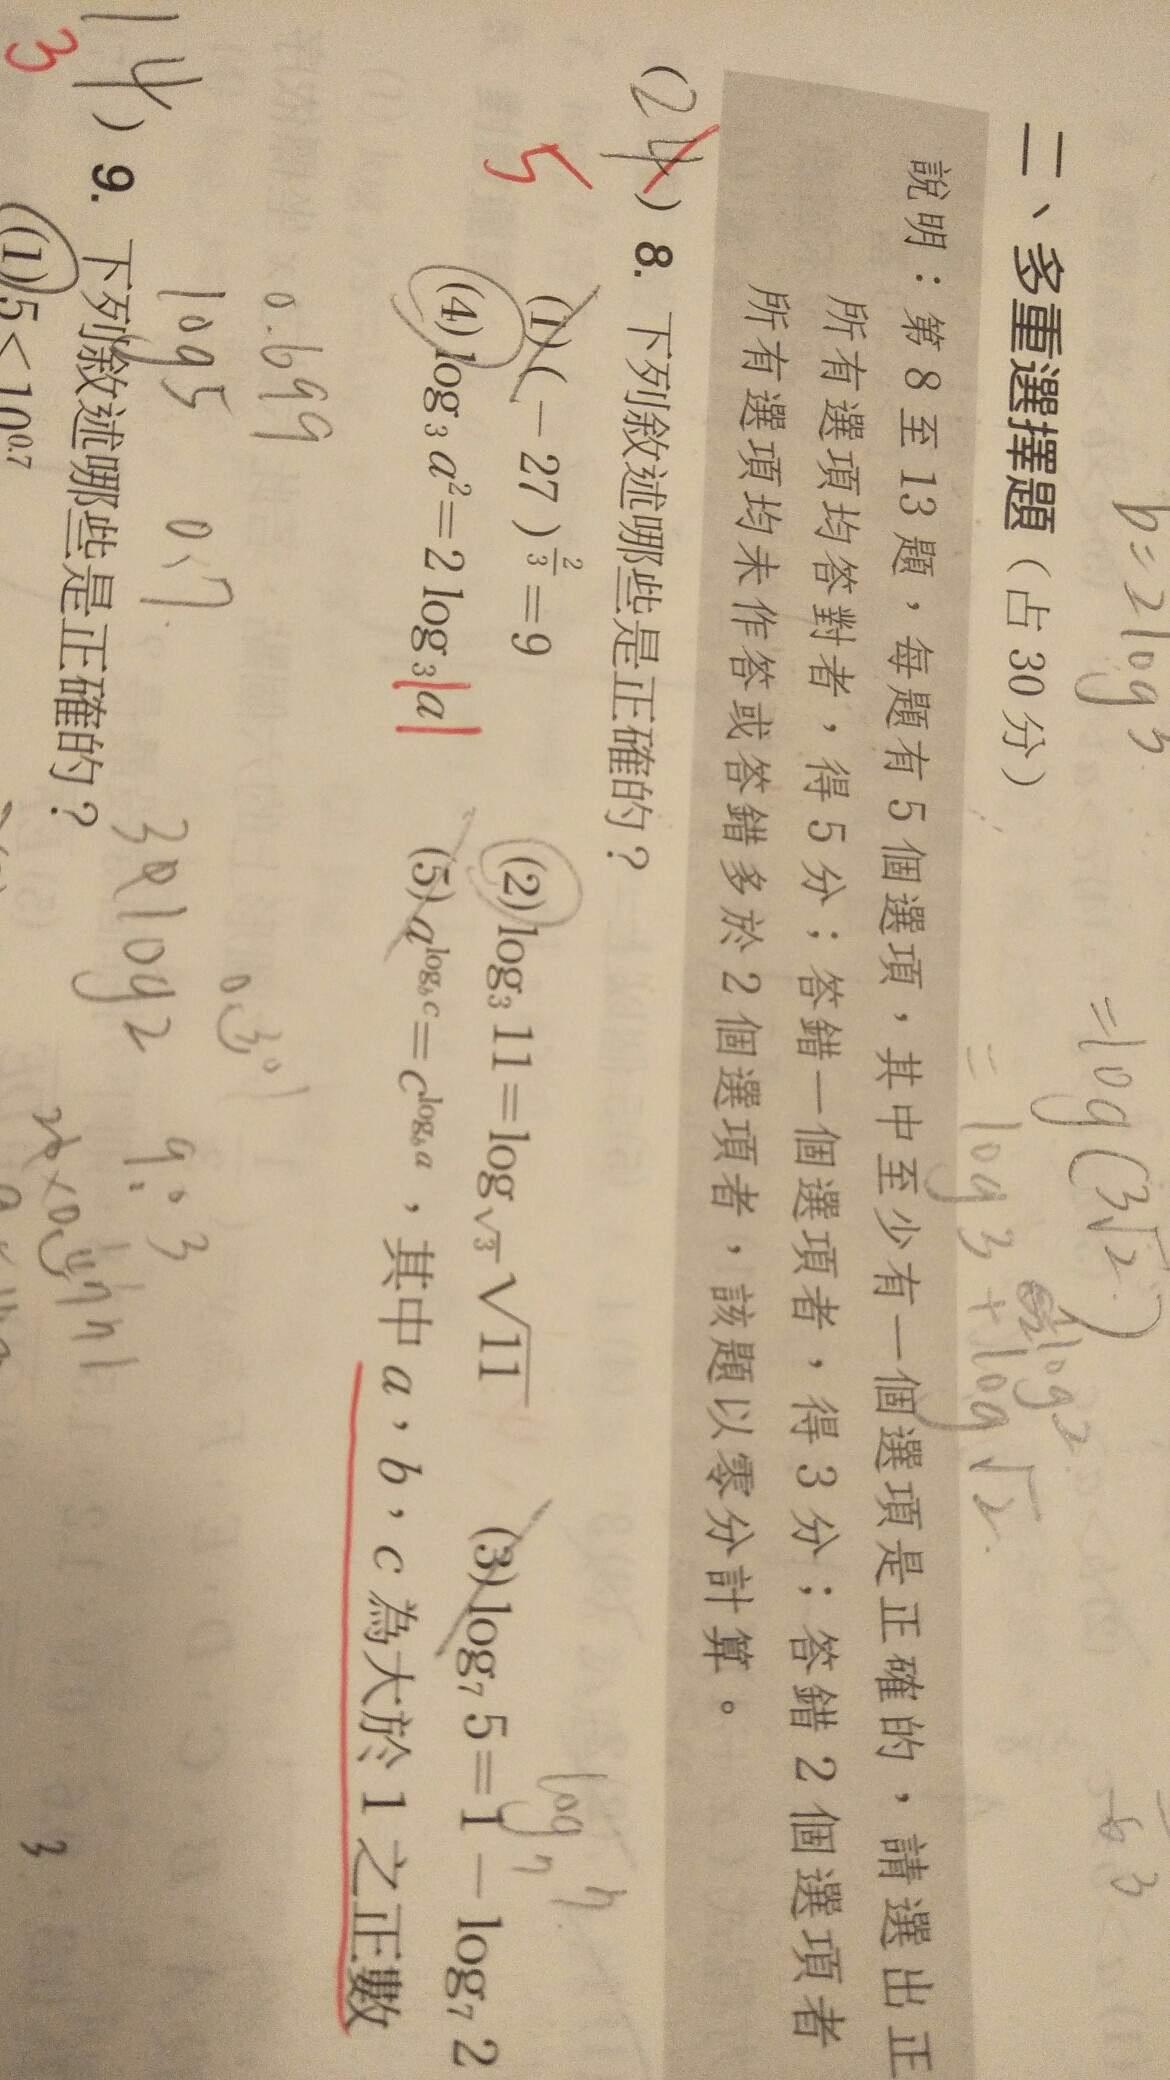 b=2log3
=log(3√2)
=log3+log√2
二、多重選擇題（占 30 分）
說明：第 8 至 13 題，每題有 5 個選項，其中至少有一個選項是正確的，請選出正
所有選項均答對者，得 5 分；答錯一個選項者，得 3 分；答錯 2 個選項者
所有選項均未作答或答錯多於 2 個選項者，該題以零分計算。
(24) 8. 下列敘述哪些是正確的？
5
(1)(－27)^{2/3}＝9 (2)log₃11＝log_{√3}√11 (3)log₇5＝1－log₇2
(4)log₃a²＝2log₃|a| (5)a^{log_b c}＝c^{log_b a}，其中 a，b，c 為大於 1 之正數
log₇7
0.699
0.301
log5 0.7 3 log2 9:3
14) 9. 下列敘述哪些是正確的？
3
(1)5＜10^{0.7}